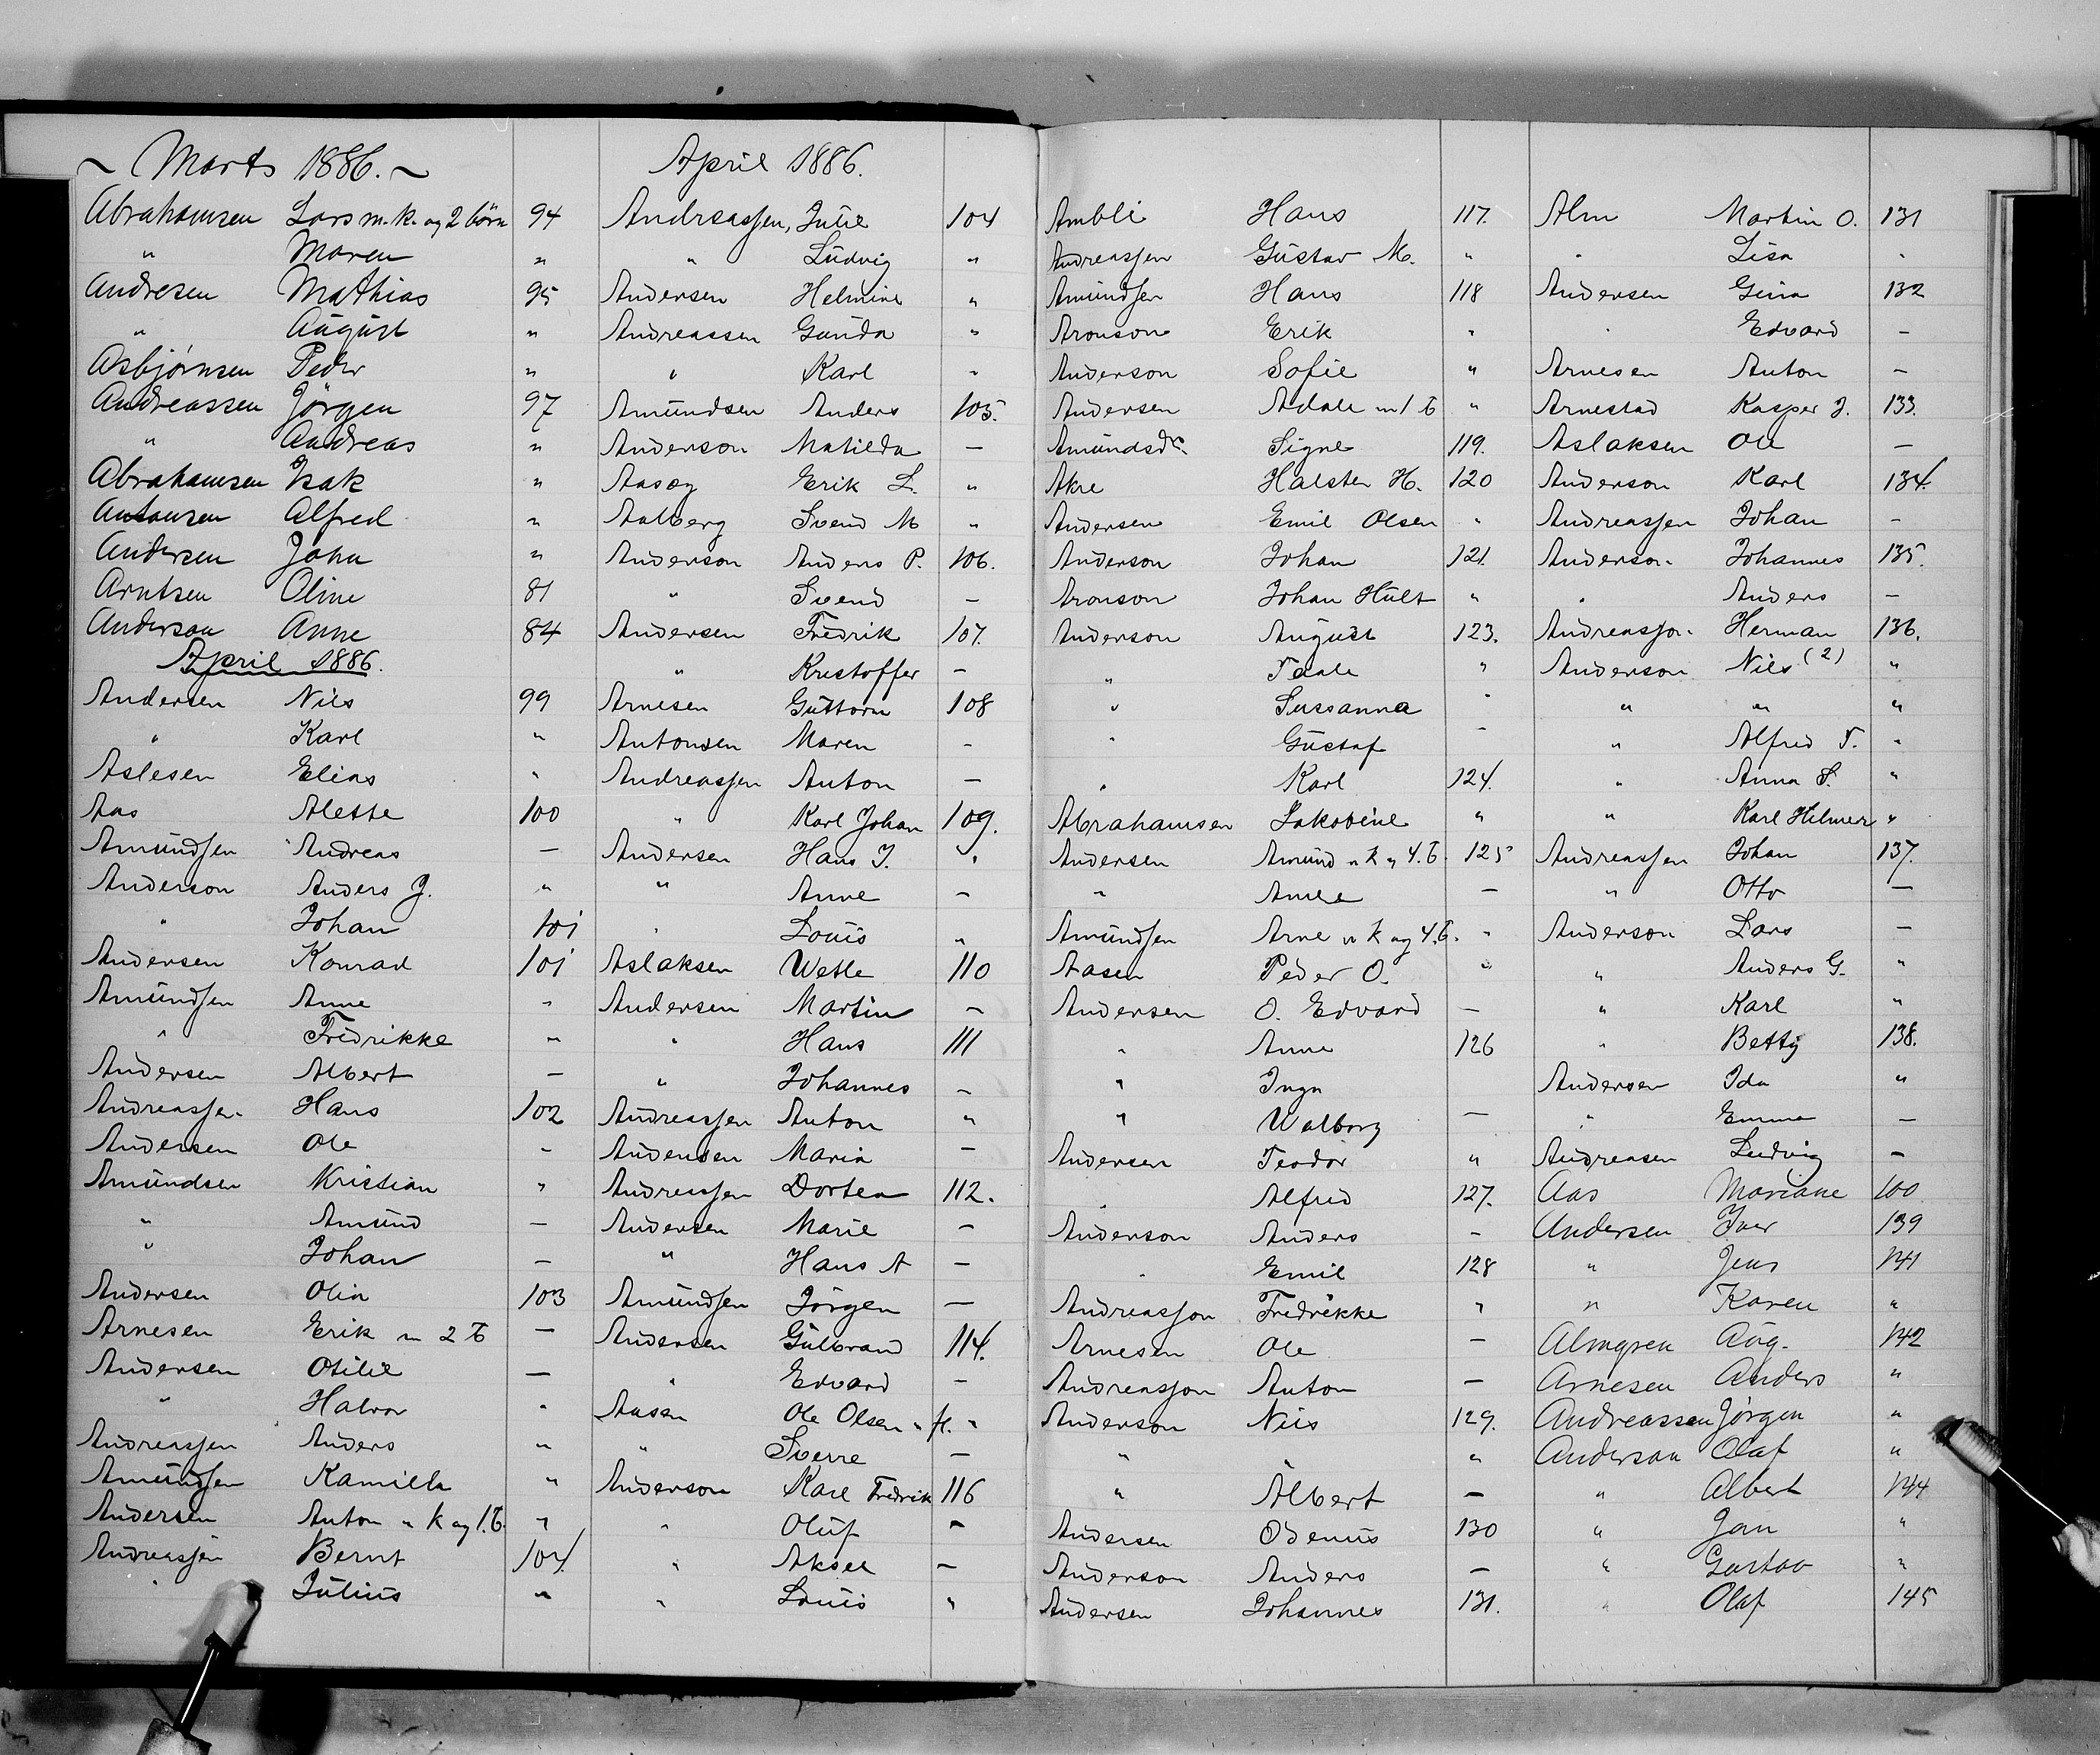 ~ Marts 1886. ~
Abrahamsen Lars m. k. og 2 börn 94
" Maren "
Andresen Mathias 95
" August "
Asbjørnsen Peder "
Andreassen Jörgen 97
" Andreas "
Abrahamsen Isak "
Antonsen Alfred "
Andersen John "
Arntsen Oline 81
Anderson Anne 84
April 1886.
Andersen Nils 99
" Karl "
Aslesen Elias "
Aas Alette 100
Amundsen Andreas —
Anderson Anders J. "
" Johan 101
Andersen Konrad 101
Amundsen Anne "
" Fredrikke "
Andersen Albert —
Andreassen Hans 102
Andersen Ole "
Amundsen Kristian "
" Amund —
" Johan —
Andersen Olia 103
Arnesen Erik m 2 B —
Andersen Otilie —
" Halvor "
Andreassen Anders "
Amundsen Kamilla "
Andersen Anton m k og 1. B. "
Andreassen Bernt 104.
" Julius "
April 1886.
Andreassen, Julie 104
" Ludvig "
Andersen Helmine "
Andreassen Gunda "
" Karl "
Amundsen Anders 105.
Anderson Matilda —
Aasoy Erik L. "
Aalberg Svend M "
Anderson Anders P. 106.
" Svend —
Andersen Fredrik 107.
" Kristoffer —
Arnesen Guttorm 108
Antonsen Maren -
Andreassen Anton —
" Karl Johan 109.
Andersen Hans J. "
" Anne -
" Louis "
Aslaksen Wetle 110
Andersen Martin -
" Hans 111
" Johannes -
Andreassen Anton "
Andensen Maria —
Andreassen Dortea 112.
Andersen Marie -
" Hans A —
Amundsen Jörgen —
Andersen Gulbrand 114.
" Edvard -
Aasen Ole Olsen " fl. "
" Sverre —
Anderson Karl Fredrik 116
" Oluf -
" Aksel -
" Louis "
Ambli Hans 117.
Andreassen Gustav M. "
Amundsen Hans 118
Aronson Erik "
Anderson Sofie "
Andersen Adale m 1 B "
Amundsdr. Signe 119.
Akre Halsten H. 120
Andersen Emil Olsen "
Anderson Johan 121.
Aronson Johan Hult "
Anderson August 123.
" Taale "
" Sussanna "
" Gustaf -
" Karl 124.
Abrahamsen Jakobine "
Andersen Amund m k og 4. B. 125
" Anne —
Amundsen Arne m k og 4. B. "
Aasen Peder O. "
Andersen O. Edvard —
" Anna 126
" Inga
" Walborg —
Andersen Teodor "
" Alfred 127.
Anderson Anders -
" Emil 128
Andreasson Fredrikke "
Arnesen Ole —
Andreasson Anton —
Anderson Nils 129.
" "
" Albert —
Andersen Odenius 130
Anderson Anders —
Andersen Johannes 131.
Alm Martin O. 131
" Lisa "
Andersen Gina 132
" Edvard —
Arnesen Anton —
Arnestad Kasper J. 133.
Aslaksen Ole —
Anderson Karl 134.
Andreassen Johan -
Anderson Johannes 135.
" Anders —
Andreasson Herman 136.
Anderson Nils (2) "
" " "
" Alfred T. "
" Anna S. "
" Karl Hilmer "
Andreassen Johan 137.
" Otto —
Anderson Lars —
" Anders G. "
" Karl "
" Betty 138.
Andersen Ida "
" Emma —
Andreasen Ludvig —
Aas Mariane 100
Andersen Iver 139
" Jens 141
" Karen "
Almgren Aug. 142
Arnesen Anders "
Andreassen Jørgen "
Anderson Olaf "
" Albert 144
" Jan "
" Gustav "
" Olaf 145